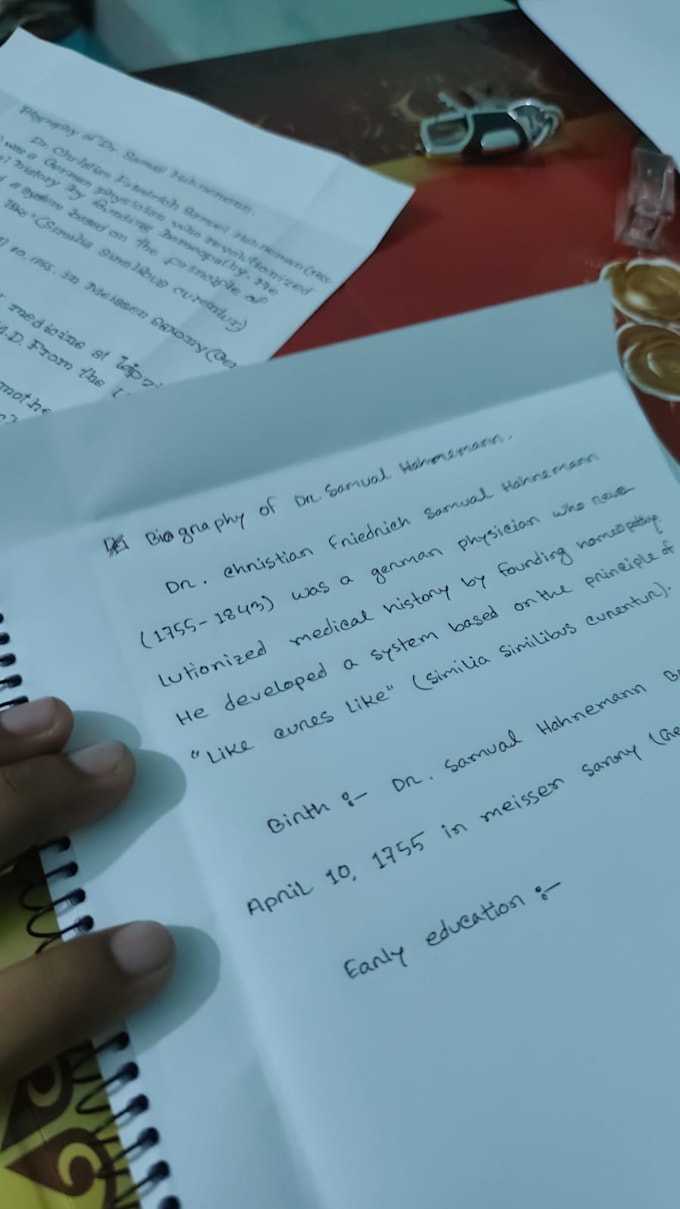 Biography of Dr. Samual Hahnemann.
Dr. Christian Friedrich Samuel Hahnemann
was a German physician who revolutionized
history by founding homeopathy. He
a system based on the principle of
like" (Similia similibus curentur)
10, 1755. in Meissen Saxony (Ge
medicine at Leipzi
M.D. From the
Biography of Dr. Samual Hahnemann.
Dr. Christian Friedrich Samual Hahnemann
(1755-1843) was a german physician who revo
lutionized medical history by founding homeopathy.
He developed a system based on the principle of
"Like cures Like" (Similia Similibus curentur).
Birth :- Dr. Samual Hahnemann
April 10, 1755 in meissen (Ge
Early education :-